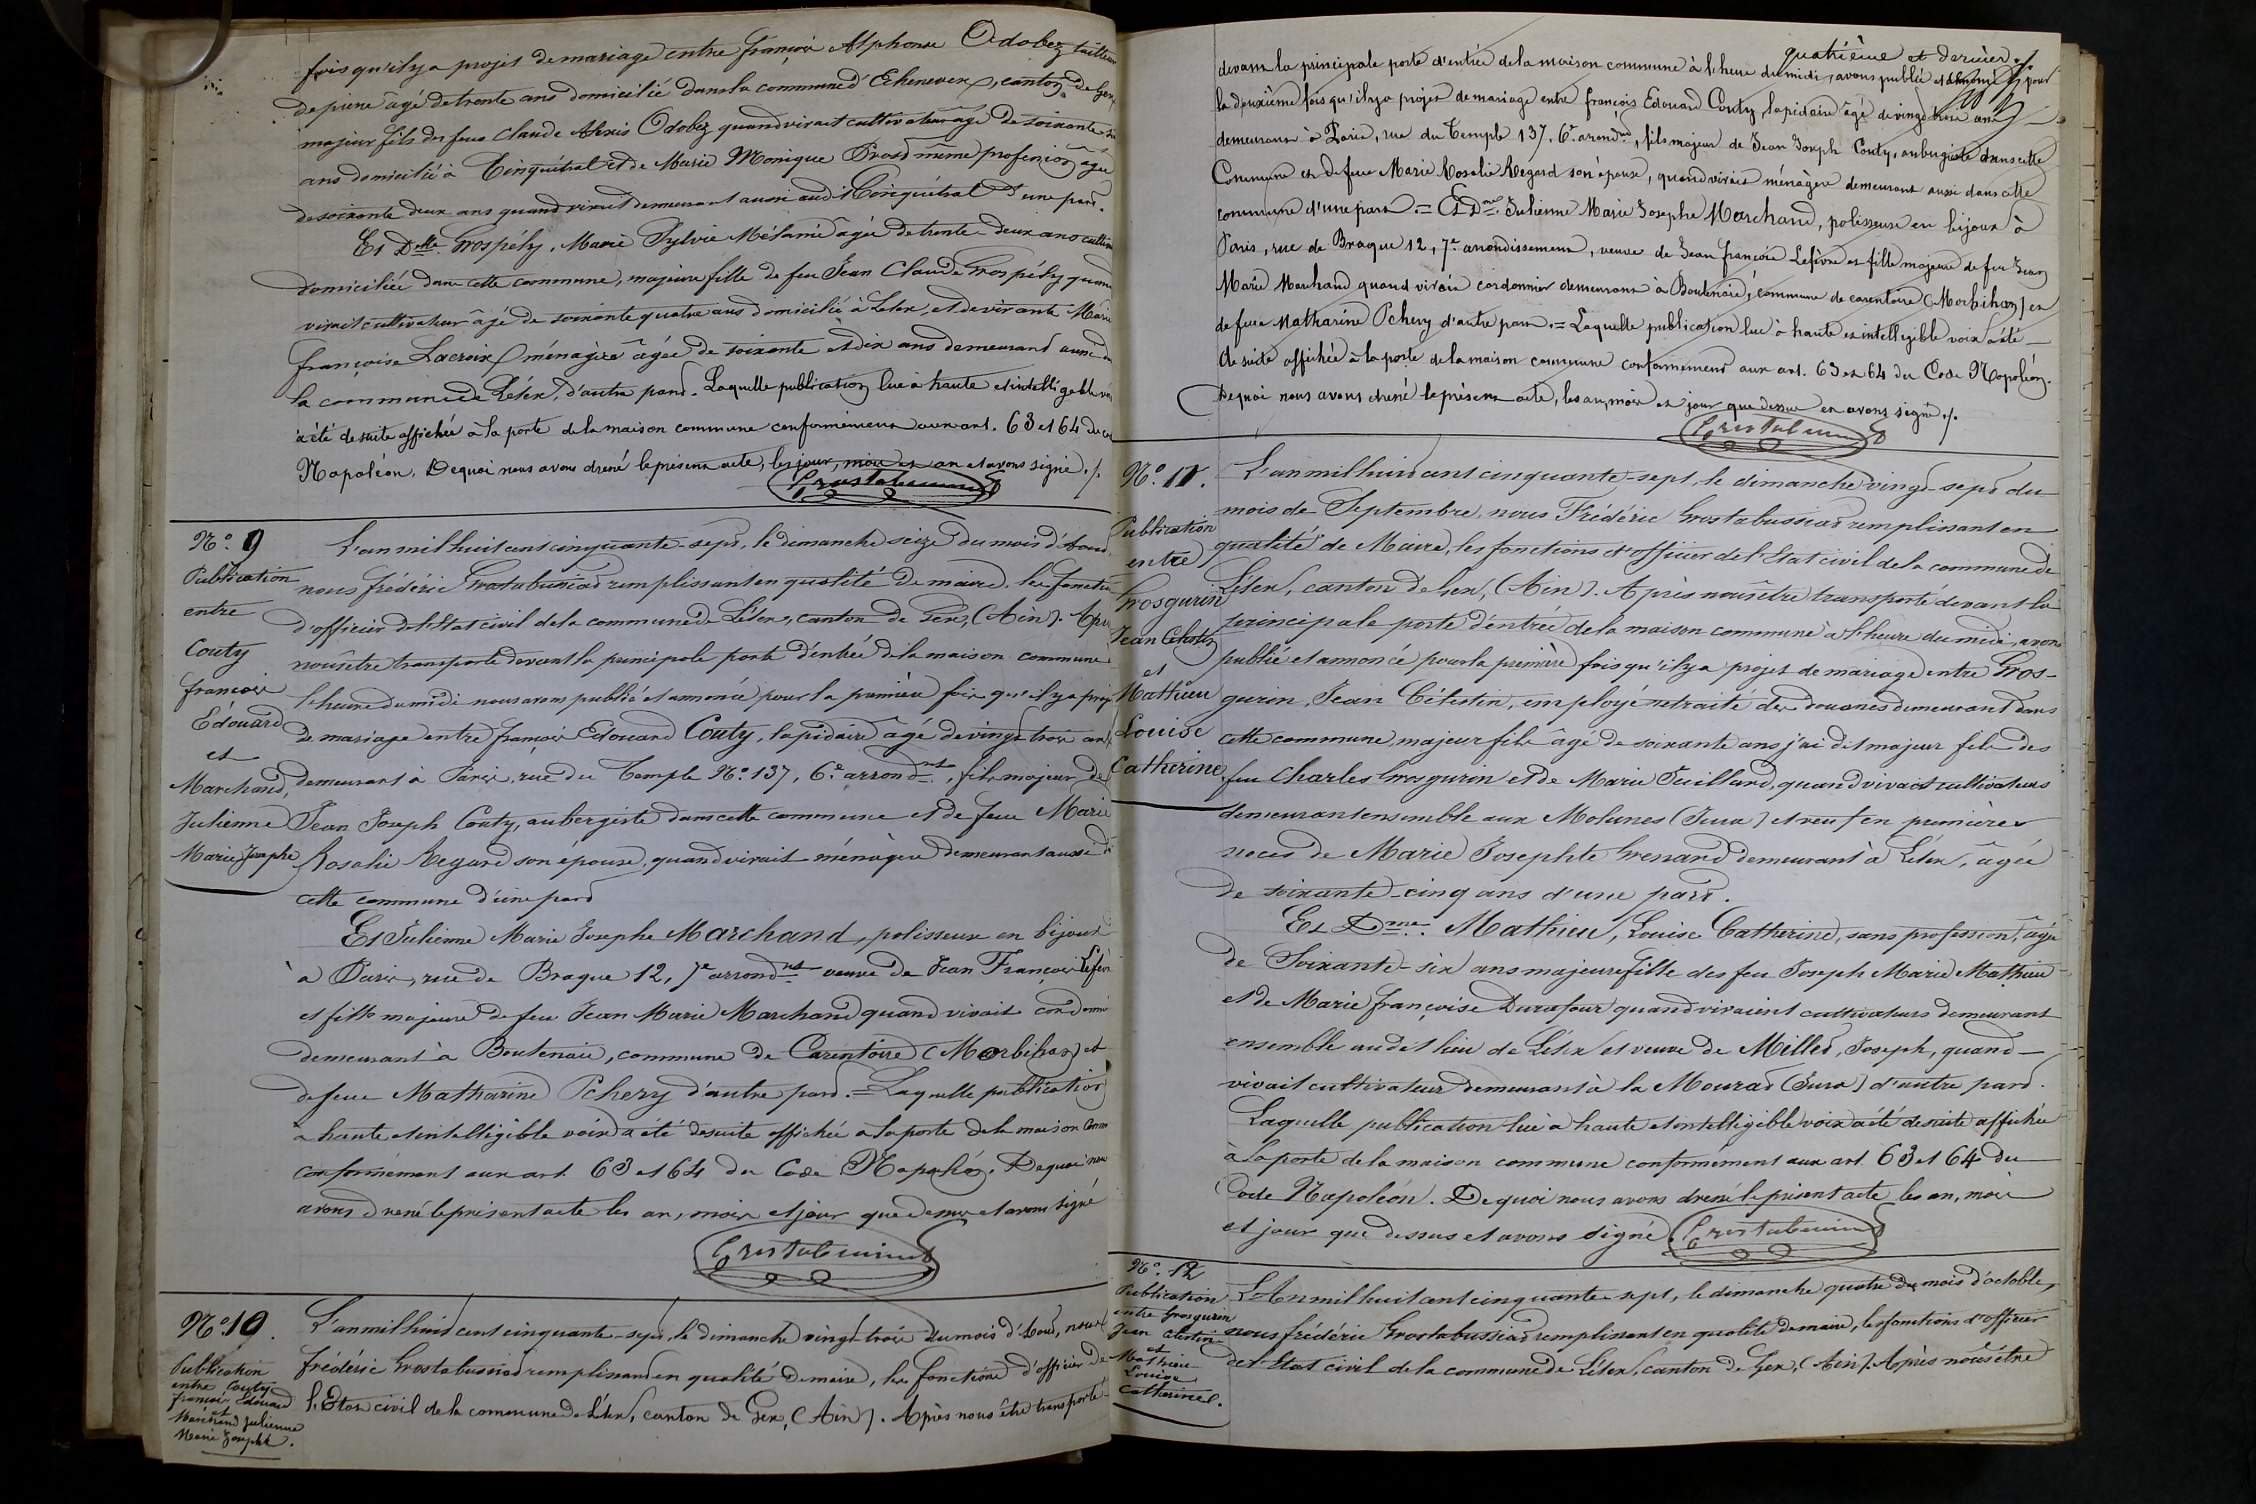 fois qu'il y a projet de mariage entre françois Alphonse Odobez tailleur
de pierre âgé de trente ans domicilié dans la commune d'Echenevex, canton de Gex,
majeur fils des feus Claude Alexis Odobez quand vivait cultivateur âgé de soixante
ans domicilié à Cinquétral et de Marie Monique Prost même profession âgée
de soixante deux ans quand vivait demeurant aussi audit Cinquétral d'une part.
Et Delle Grospély, Marie Sylvie Mélanie âgée de trente-deux ans
domiciliée dans cette commune, majeure fille de feu Jean Claude Grospély quand
vivait cultivateur âgé de soixante quatre ans domicilié à Lélex, et de vivante Marie
françoise Lacroix ménagère âgée de soixante et dix ans demeurant aussi
la commune de Lélex, d'autre part. Laquelle publication lue à haute et intelligible
a été de suite affichée à la porte de la maison commune conformément aux art. 63 et 64 du
Napoléon. De quoi nous avons dressé le présent acte, les jour, mois et an et avons signé ./.
Grostabussiat
N.° 9
Publication
entre
Couty
françois
Edouard
et
Marchand,
Julienne
Marie Josephe
L'an mil huit cent cinquante-sept, le dimanche seize du mois d'Aout,
nous frédéric Grostabussiat remplissant en qualité de maire, les fonctions
d'officier de l'Etat civil de la commune de Lélex, canton de Gex, (Ain). Après
nous être transporté devant la principale porte d'entrée de la maison commune
l'heure de midi nous avons publié et annoncé pour la première fois qu'il y a projet
de mariage entre françois Edouard Couty, lapidaire âgé de vingt trois ans,
demeurant à Paris, rue du Temple N.° 137, 6.e arrondnt, fils majeur de
Jean Joseph Couty, aubergiste dans cette commune et de feue Marie
Rosalie Regard son épouse, quand vivait ménagère demeurant aussi
cette commune d'une part
Et Julienne Marie Josephe Marchand, polisseuse en bijoux
à Paris, rue de Braque 12, 7e arrondnt veuve de Jean François Lefèvre
et fille majeure de feu Jean Marie Marchand quand vivait cordonnier
demeurant à Boutenaie, commune de Carentoire (Morbihan) et
de feue Matharine Pchery d'autre part. = Laquelle publication
à haute et intelligible voix a été de suite affichée à la porte de la maison
conformément aux art. 63 et 64 du Code Napoléon. De quoi nous
avons dressé le présent acte les an, mois et jour que dessus et avons signé
Grostabussiat
N.° 10.
Publication
entre Couty
françois Edouard
et
Marchand Julienne
Marie Josephe.
L'an mil huit cent cinquante-sept, le dimanche vingt-trois du mois d'Aout, nous
frédéric Grostabussiat remplissant en qualité de maire, les fonctions d'officier de
l'Etat civil de la commune de Lélex, canton de Gex, (Ain). Après nous être transporté
quatrième et dernier ./.
devant la principale porte d'entrée de la maison commune à l'heure de midi, avons publié et annoncé pour
la deuxième fois qu'il y a projet de mariage entre françois Edouard Couty, lapidaire âgé de vingt trois ans
demeurant à Paris, rue du Temple 137. 6e arondnt, fils majeur de Jean Joseph Couty, aubergiste dans cette
Commune et de feue Marie Rosalie Regard son épouse, quand vivait ménagère demeurant aussi dans cette
commune d'une part. = Et Dme Julienne Marie Josephe Marchand, polisseuse en bijoux à
Paris, rue de Braque 12, 7e arrondissement, veuve de Jean françois Lefèvre et fille majeure de feu Jean
Marie Marchand quand vivait cordonnier demeurant à Boutenaie, commune de carentoire (Morbihan) et
de feue Matharine Pchery d'autre part. = Laquelle publication lue à haute et intelligible voix a été
de suite affichée à la porte de la maison commune conformément aux art. 63 et 64 du Code Napoléon.
De quoi nous avons dressé le présent acte, les an, mois et jour que dessus et avons signé ./.
Grostabussiat
N.° 11.
Publication
entre
Grosgurin
Jean Célestin
et
Mathieu
Louise
Catherine
L'an mil huit cent cinquante-sept, le dimanche vingt-sept du
mois de Septembre, nous Frédéric Grostabussiat remplissant en
qualité de Maire, les fonctions d'officier de l'Etat civil de la commune de
Lélex, canton de Gex, (Ain). Après nous être transporté devant la
principale porte d'entrée de la maison commune à l'heure de midi, avons
publié et annoncé pour la première fois qu'il y a projet de mariage entre Gros-
gurin, Jean Célestin, employé retraité des douanes demeurant dans
cette commune, majeur fils âgé de soixante ans j'ai dit majeur fils des
feu Charles Grosgurin et de Marie Juillard, quand vivait cultivateurs
demeurant ensemble aux Molunes (Jura) et veuf en premières
noces de Marie Josephte Grenard demeurant à Lélex, âgée
de soixante-cinq ans d'une part.
Et Dme. Mathieu, Louise Catherine, sans profession, âgée
de Soixante-six ans majeure fille des feu Joseph Marie Mathieu
et de Marie françoise Durafour quand vivaient cultivateurs demeurant
ensemble audit lieu de Lélex et veuve de Millet, Joseph, quand
vivait cultivateur demeurant à la Mourat (Jura) d'autre part.
Laquelle publication lue à haute et intelligible voix a été de suite affichée
à la porte de la maison commune conformément aux art. 63 et 64 du
Code Napoléon. De quoi nous avons dressé le présent acte les an, mois
et jour que dessus et avons signé. Grostabussiat
N.° 12
Publication
entre Grosgurin
Jean Célestin
et
Mathieu
Louise
Catherine.
L'An mil huit cent cinquante-sept, le dimanche quatre du mois d'octobre,
nous frédéric Grostabussiat remplissant en qualité de maire, les fonctions d'officier
de l'Etat civil de la commune de Lélex, canton de Gex, (Ain). Après nous être